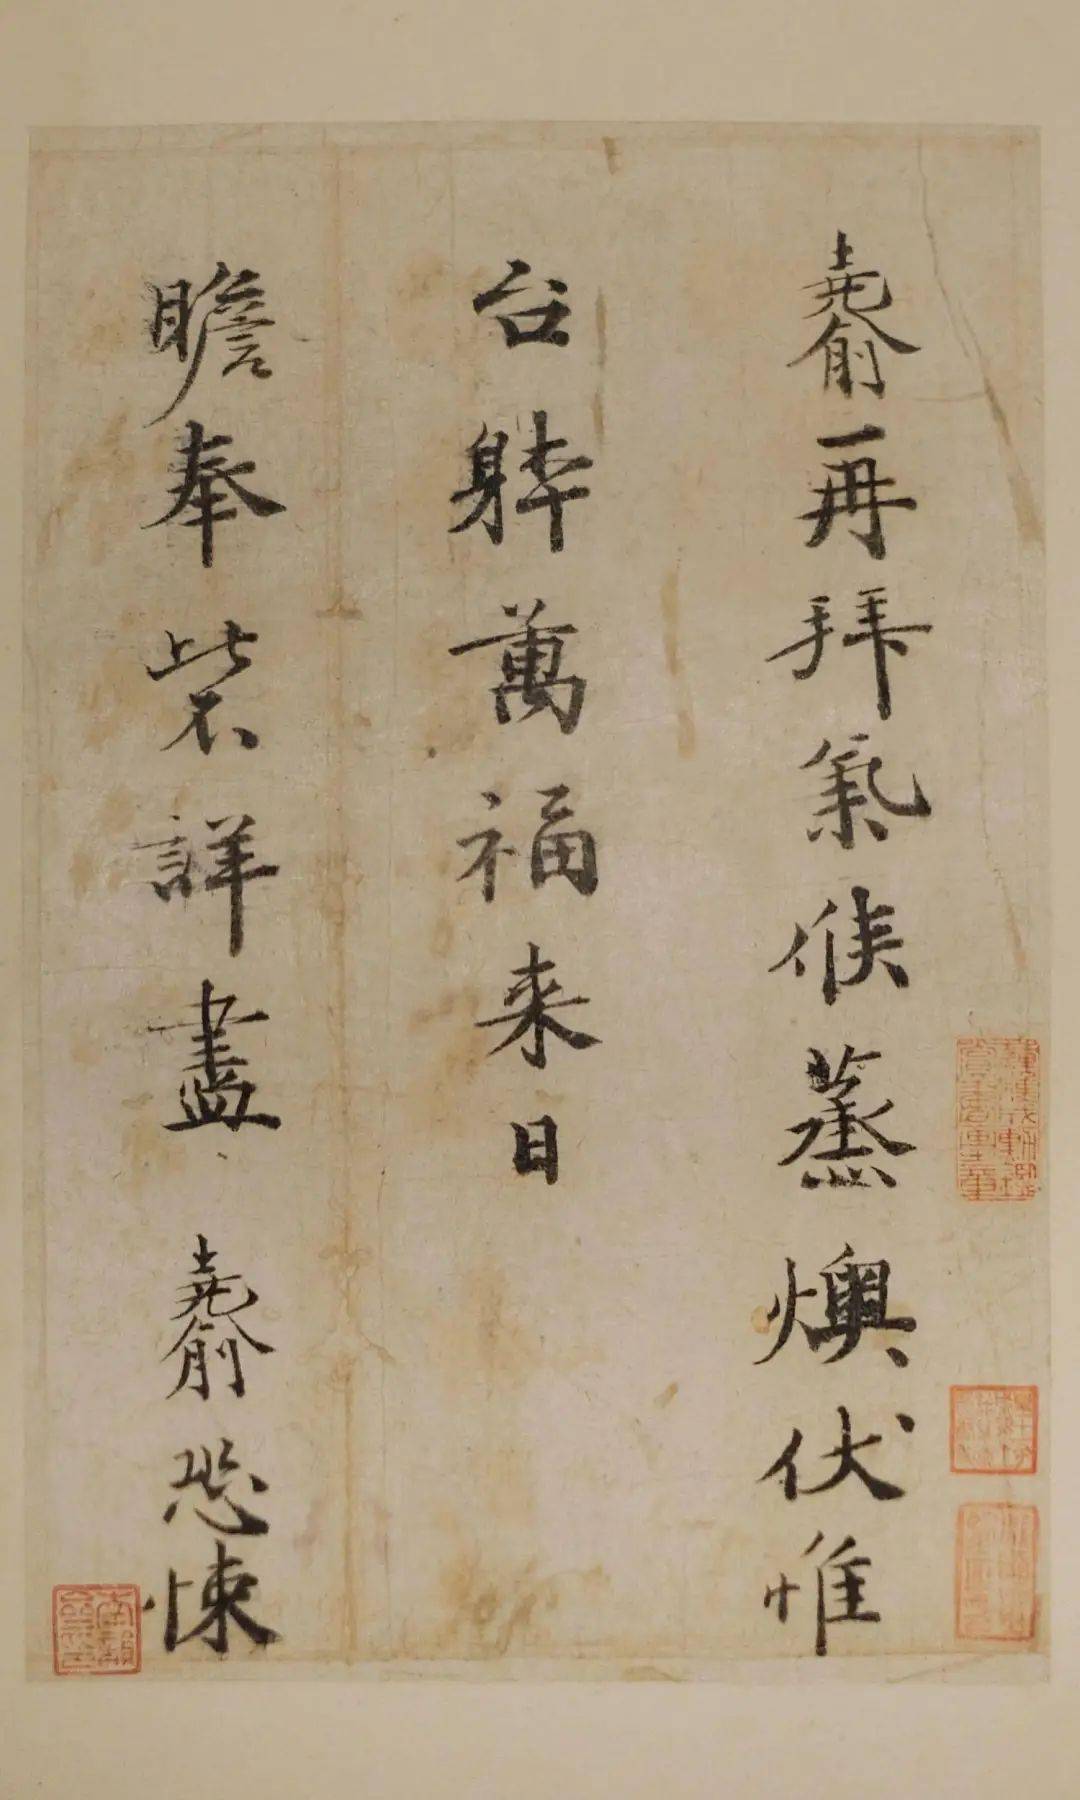 堯俞再拜氣候蒸燠伏惟
台躰萬福來日
瞻奉此不詳盡堯俞恐悚